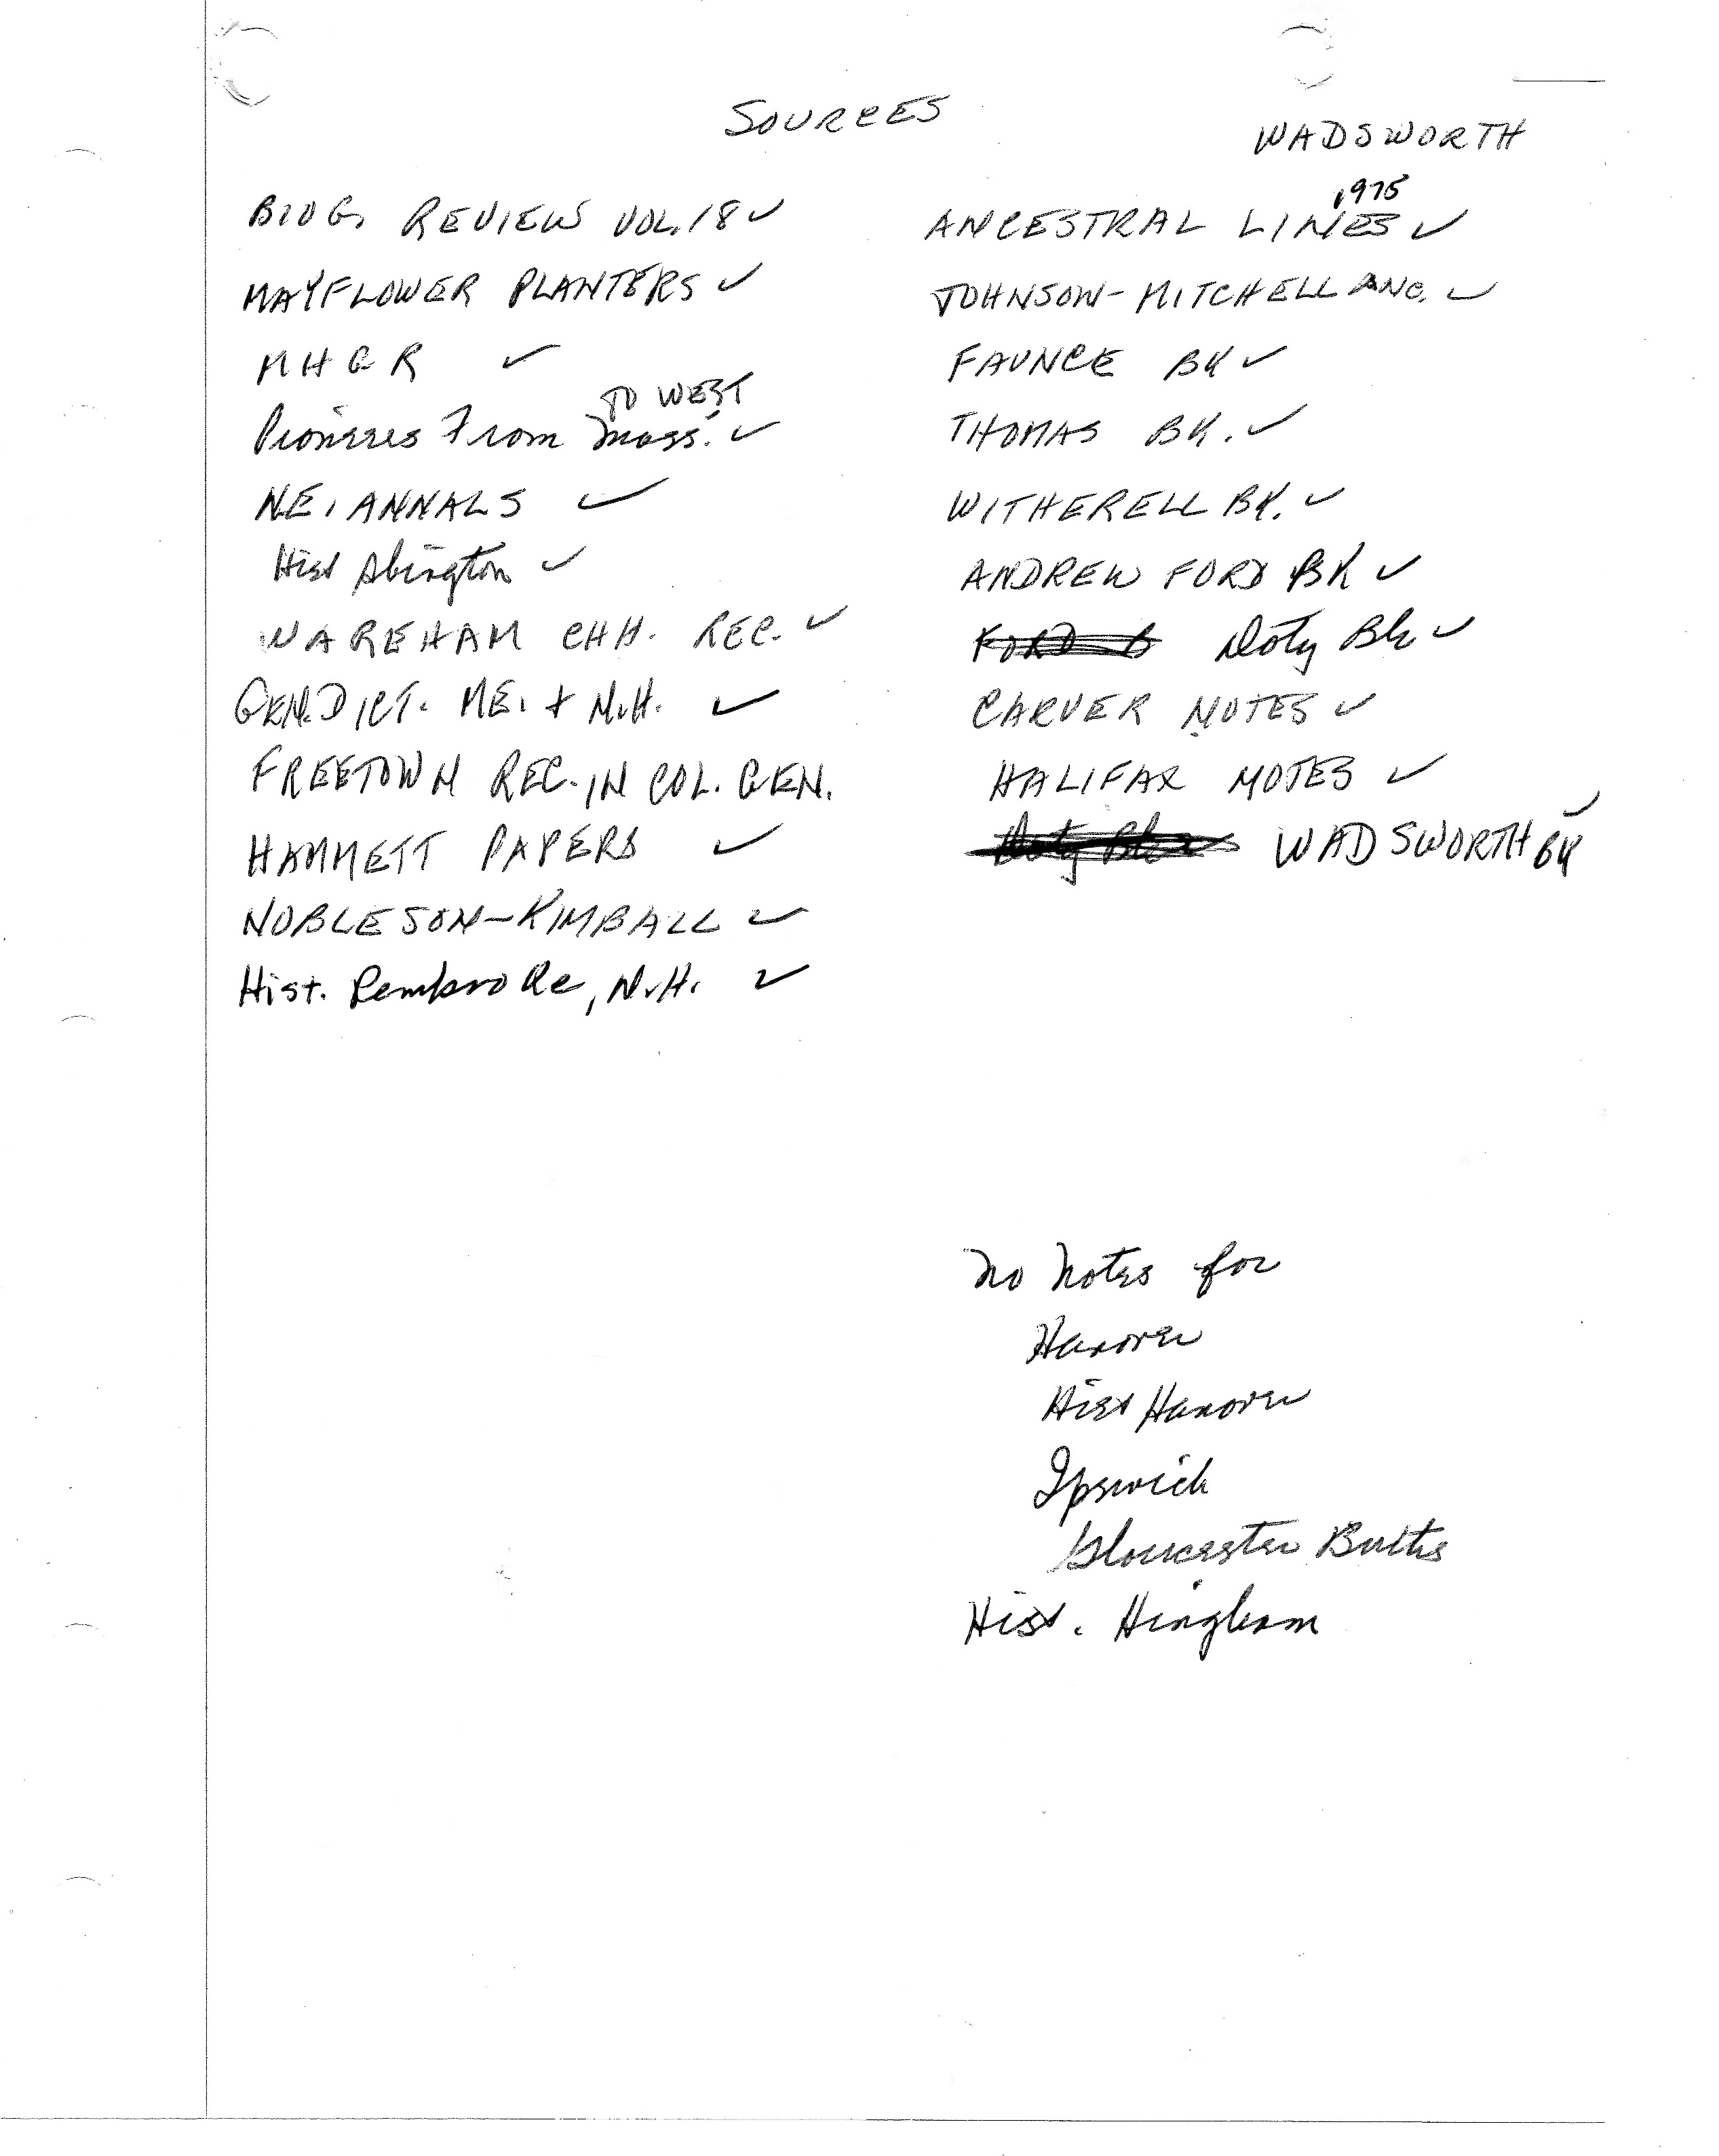 SOURCES
WADSWORTH
BIOG. REVIEW VOL. 18 ✓
MAYFLOWER PLANTERS ✓
MHGR ✓
TO WEST
Pioneers From Mass. ✓
N.E. ANNALS ✓
Hist Abington ✓
WAREHAM CHH. REC. ✓
GEN. DICT. ME. + N.H. ✓
FREETOWN REC. IN COL. GEN.
HAMMETT PAPERS ✓
NOBLESON-KIMBALL ✓
Hist. Pembroke, N.H. ✓
1975
ANCESTRAL LINES ✓
JOHNSON-MITCHELL ANC. ✓
FAUNCE BK ✓
THOMAS BK. ✓
WITHERELL BK. ✓
ANDREW FORD BK ✓
FORD B Doty Bk ✓
CARVER NOTES ✓
HALIFAX NOTES ✓
Doty Bk WADSWORTH BK ✓
No Notes for
Hanover
Hist Hanover
Ipswich
Gloucester Births
Hist. Hingham